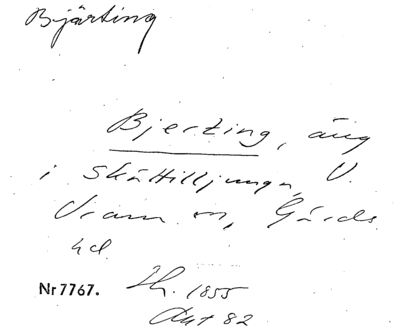 Bjärting
Bjerting, äng
i Skättilljunga, V.
Vram sn, Gärds
hd.
Nr 7767. Lh. 1855
Akt 82